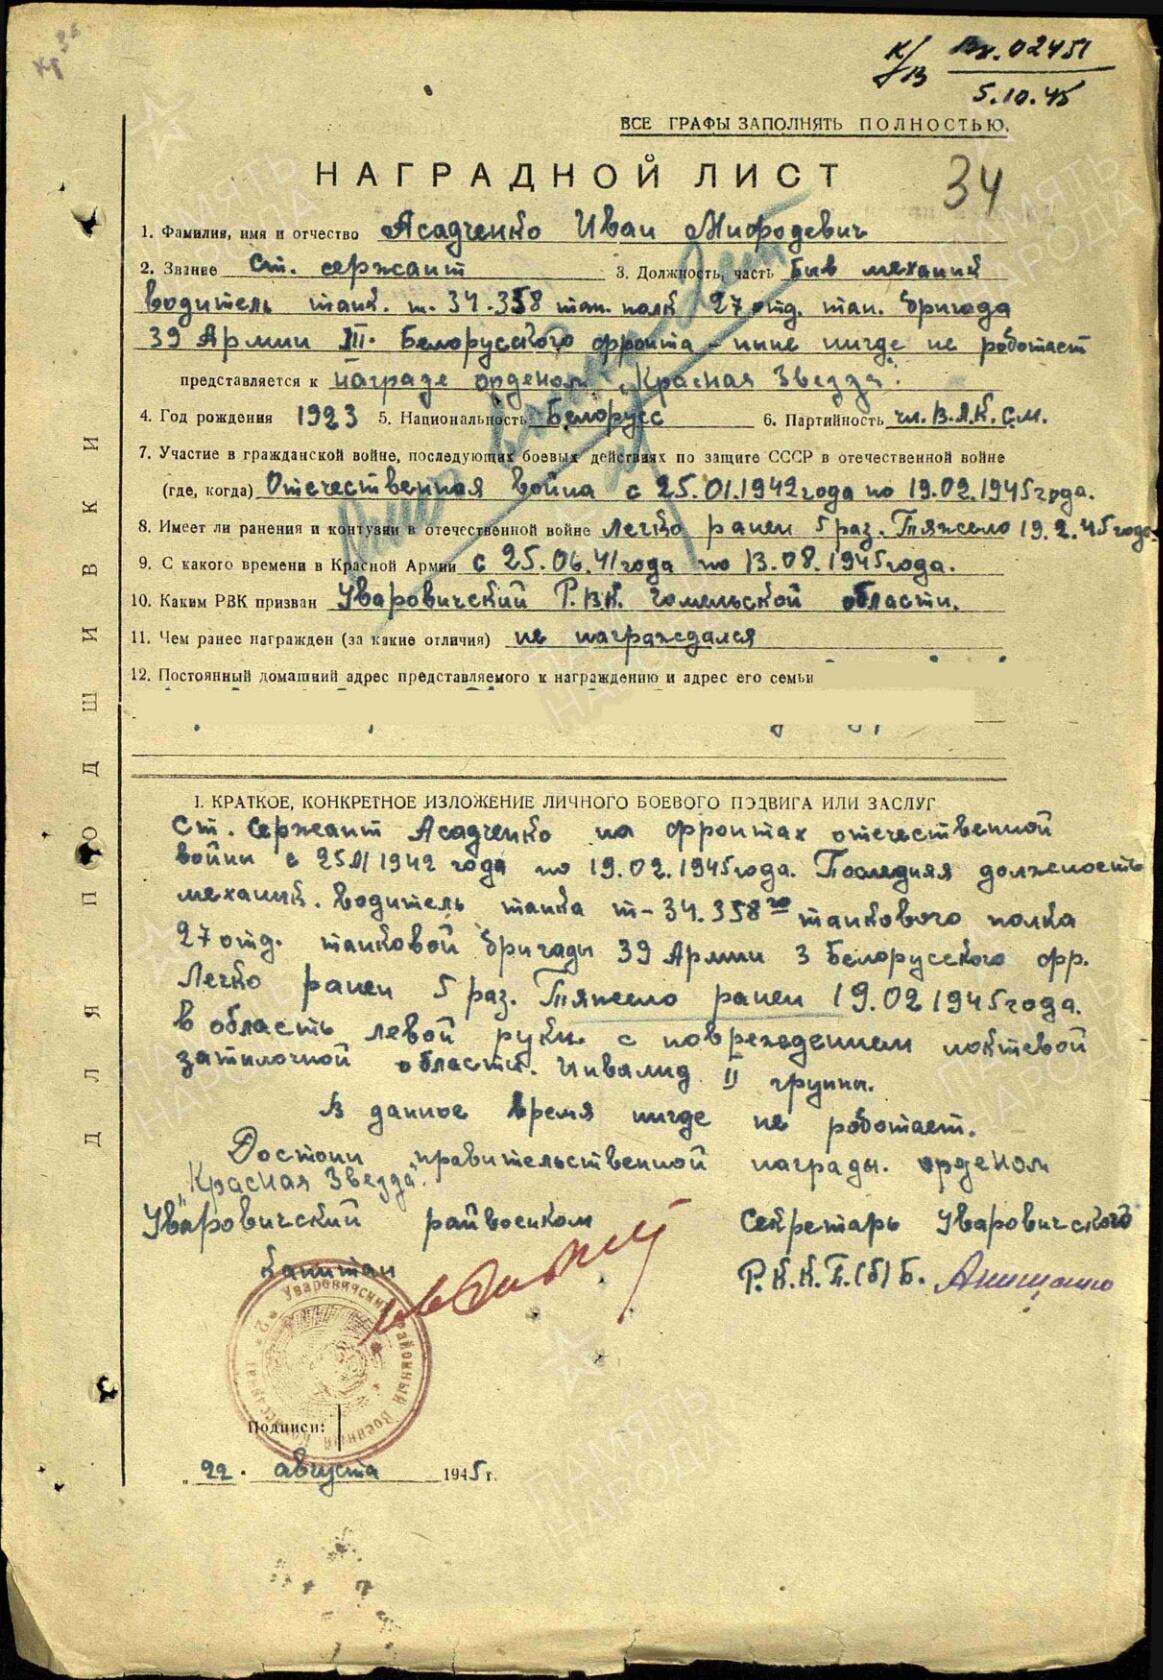 К/В Вх.02451
5.10.45
ВСЕ ГРАФЫ ЗАПОЛНЯТЬ ПОЛНОСТЬЮ.
НАГРАДНОЙ ЛИСТ 34
1. Фамилия, имя и отчество Асадченко Иван Мифодевич
2. Звание Ст. сержант 3. Должность, часть Быв механик
водитель танк. т-34.358 тан. полк 27 отд. тан. бригада
39 Армии III. Белорусского фронта – ныне нигде не работает
представляется к награде орденом „Красная Звезда".
4. Год рождения 1923 5. Национальность Белорусс 6. Партийность чл. В.Л.К.С.М.
7. Участие в гражданской войне, последующих боевых действиях по защите СССР в отечественной войне
(где, когда) Отечественная война с 25.01.1942 года по 19.02.1945 года.
8. Имеет ли ранения и контузии в отечественной войне Легко ранен 5 раз. Тяжело 19.2.45 года.
9. С какого времени в Красной Армии с 25.06.41 года по 13.08.1945 года.
10. Каким РВК призван Уваровичский Р.В.К. Гомельской области.
11. Чем ранее награжден (за какие отличия) не награждался
12. Постоянный домашний адрес представляемого к награждению и адрес его семьи
I. КРАТКОЕ, КОНКРЕТНОЕ ИЗЛОЖЕНИЕ ЛИЧНОГО БОЕВОГО ПОДВИГА ИЛИ ЗАСЛУГ
Ст. Сержант Асадченко на фронтах отечественной
войны с 25.01 1942 года по 19.02.1945 года. Последняя должность
механик. водитель танка т-34.358го танкового полка
27 отд. танковой бригады 39 Армии 3 Белорусского фр.
Легко ранен 5 раз. Тяжело ранен 19.02 1945 года.
в область левой руки с повреждением локтевой
затылочной области. Инвалид II группы.
В данное время нигде не работает.
Достоин правительственной награды. орденом
„Красная Звезда".
Уваровичский райвоенком Секретарь Уваровичского
капитан Р.К.К.П.(б)Б.
Уваровичский Районный Военный Комиссариат
Подписи:
„22. августа 1945 г.
ДЛЯ ПОДШИВКИ
ПАМЯТЬ НАРОДА